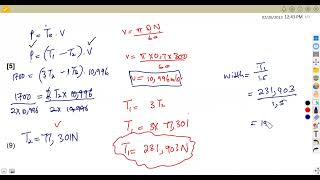 02/28/2023 12:43 PM
P = Te . V
P = (T1 - T2) . V
[5]
1700 = (3T2 - 1T2) . 10,996
1700 = 2T2 x 10,996
2x10,996 2x10,996
T2 = 77,301N
(9)
V = πDN
60
V = π x 0,7 x 300
60
V = 10,996m/s
T1 = 3T2
T1 = 3x 77,301
T1 = 231,903N
width = T1
1,5
= 231,903
1,5
= 15